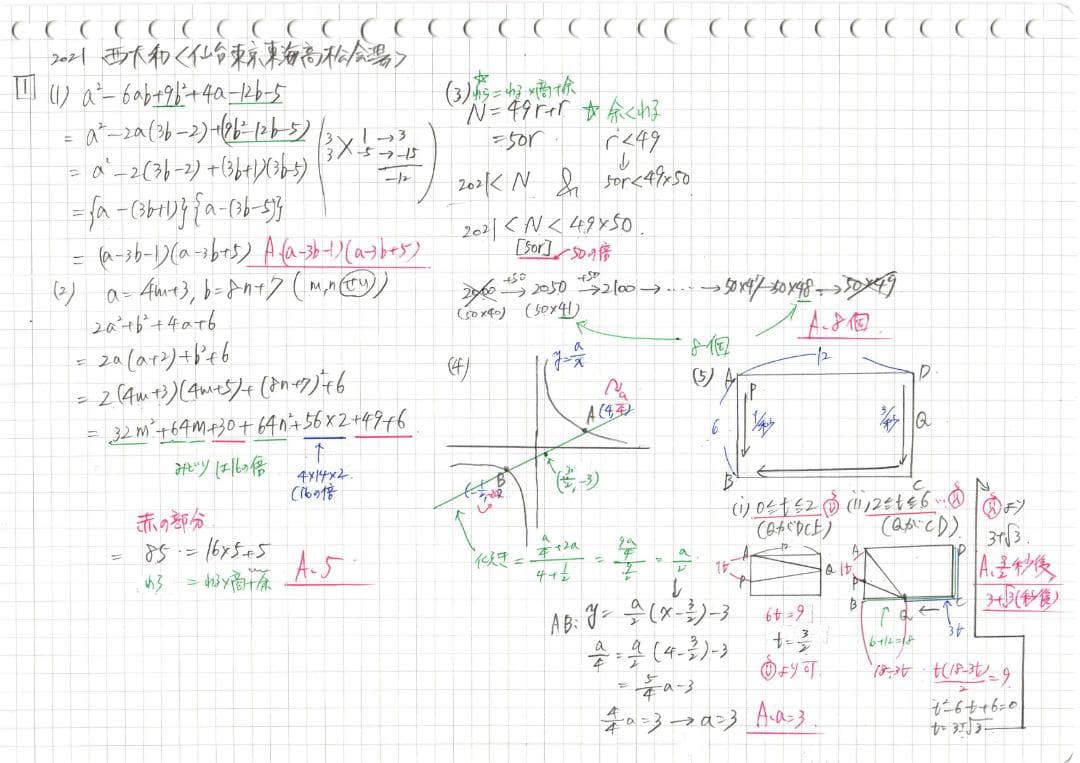 2021 西大和<仙台東京東海高松会場>
1
(1) a²-6ab+9b²+4a-12b-5
= a²-2a(3b-2)+(9b²-12b-5)
3 1 → 3
3 × -5 → -15
-12
= a²-2(3b-2)+(3b+1)(3b-5)
= {a-(3b+1)}{a-(3b-5)}
= (a-3b-1)(a-3b+5) A.(a-3b-1)(a-3b+5)
(2) a=4m+3, b=8n+7 (m,n
2a²+b²+4a+6
= 2a(a+2)+b²+6
= 2(4m+3)(4m+5)+(8n+7)²+6
= 32m²+64m+30+64n²+56×2+49+6
みどりは16の倍
4×14×2
(16の倍
赤の部分
= 85 = 16×5+5
わる = わる×商+余
A.5
(3) ☆わる=わる×商+余
N=49r+r ☆余<わる
=50r r<49
↓
2021<N & 50r<49×50
2021<N<49×50.
[50r] 50の倍
2000 +50→ 2050 +50→ 2100 → ...... → 50×47 → 50×48 → 50×49
(50×40) (50×41)
8個
A.8個
(4)
y=a/x
A(4, a/4)
B
(3/2, -3)
変=(a/4+2a)/(4+1/2) = (9a/4)/(9/2) = a/2
↓
AB: y=a/2(x-3/2)-3
a/4=a/2(4-3/2)-3
=5/4a-3
4/4a=3 → a=3 A.a=3
(5)
12
A D
P
6 1/秒 3/秒 Q
B C
(i) 0≦t≦2 (ii) 2≦t≦6
(QがDC上) (QがCD)
A
1t
P
Q
6t=9
t=3/2
より可
A D
1t
P
B Q C
6+12=18
3t
18-3t
t(18-3t)/2=9
t²-6t+6=0
t=3±√3
より
3+√3
A.3/2秒後
3+√3(秒後)